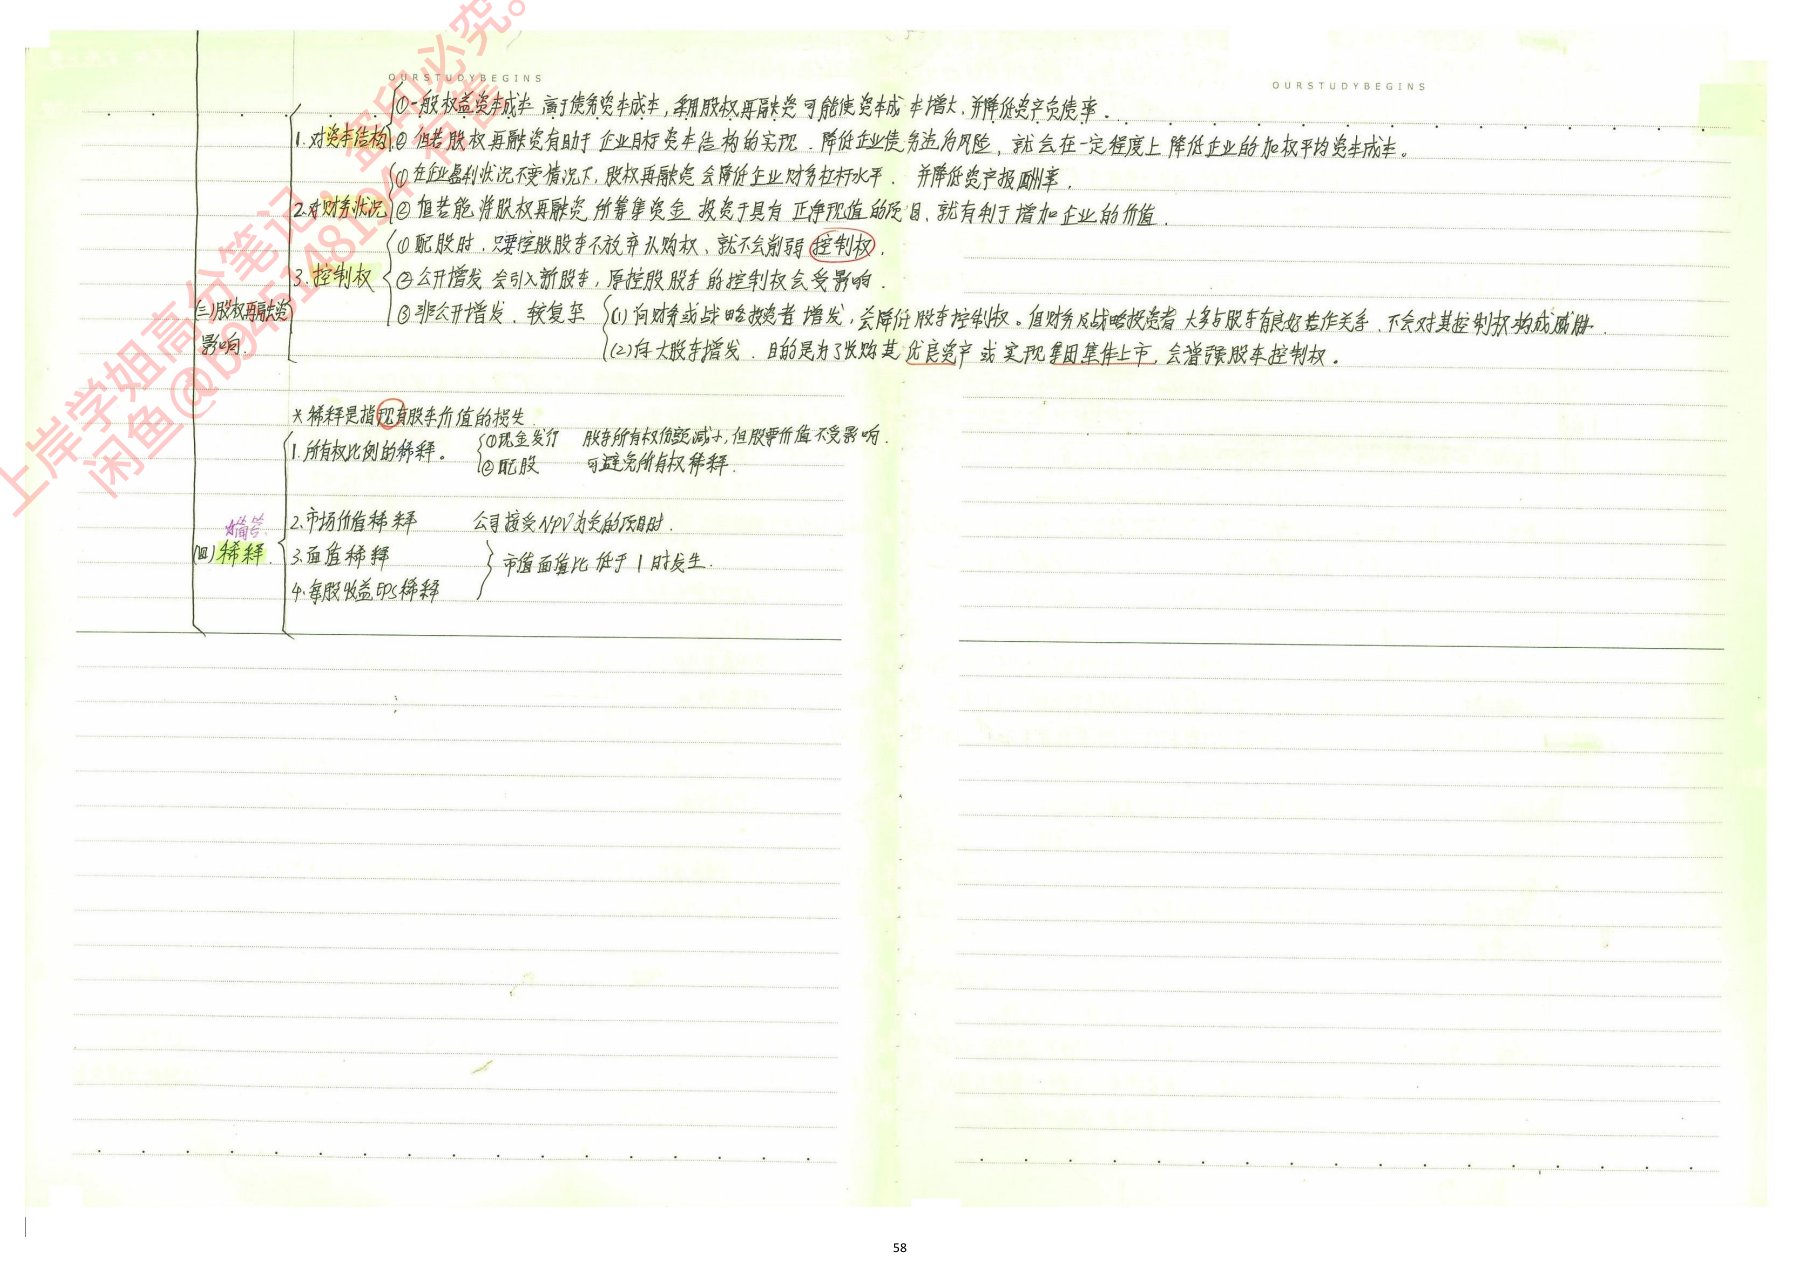 OURSTUDYBEGINS
OURSTUDYBEGINS
①一般权益资本成本高于债务资本成本,采用股权再融资可能使资本成本增大,并降低资产负债率.
1.对资本结构
②但若股权再融资有助于企业目标资本结构的实现.降低企业债务违约风险,就会在一定程度上降低企业的加权平均资本成本。
①在企业盈利状况不变情况下,股权再融资会降低企业财务杠杆水平.并降低资产报酬率.
2.对财务状况
②但若能将股权再融资所筹集资金投资于具有正净现值的项目、就有利于增加企业的价值.
①配股时.只要控股股东不放弃认购权、就不会削弱控制权.
3.控制权
②公开增发会引入新股东,原控股股东的控制权会受影响.
③非公开增发.较复杂
(1)向财务或战略投资者增发,会降低股东控制权。但财务及战略投资者大多与股东有良好合作关系.不会对其控制权构成威胁.
(三)股权再融资
影响.
(2)向大股东增发.目的是为了收购其优良资产或实现集团集体上市.会增强股东控制权。
*稀释是指现有股东价值的损失
1.所有权比例的稀释。
①现金发行 股东所有权份额减少,但股票价值不受影响.
②配股 可避免所有权稀释.
2.市场价值稀释 公司接受NPV为负的项目时.
(四)稀释.
3.面值稀释
市值面值比低于1时发生.
4.每股收益EPS稀释
上岸学姐高分笔记,盗印必究。
闲鱼@b94514819404有售
58